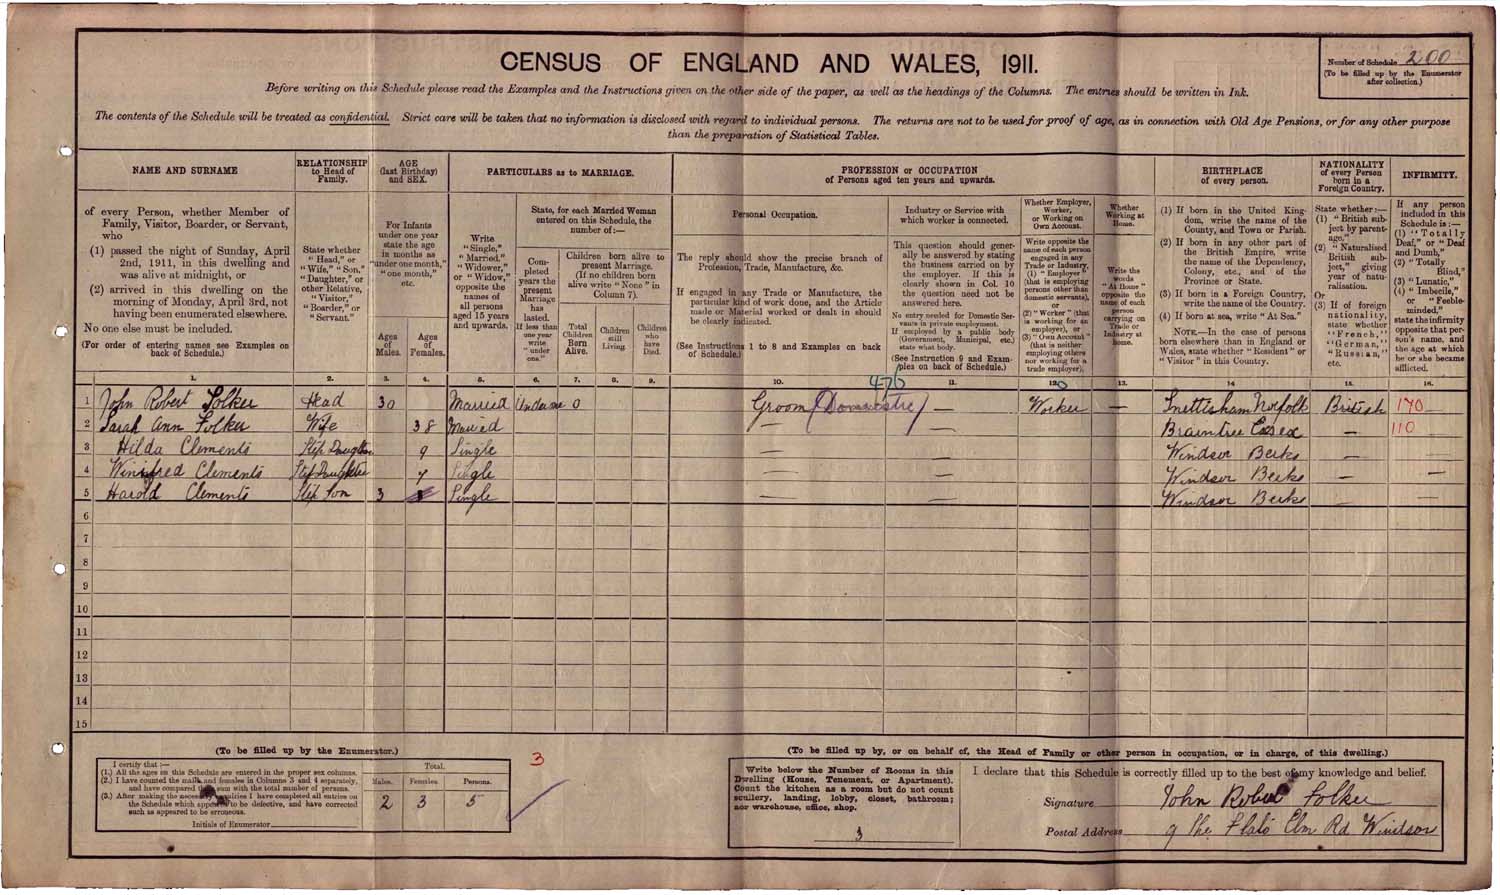 CENSUS OF ENGLAND AND WALES, 1911.
Number of Schedule 200
(To be filled up by the Enumerator
after collection.)
Before writing on this Schedule please read the Examples and the Instructions given on the other side of the paper, as well as the headings of the Columns. The entries should be written in Ink.
The contents of the Schedule will be treated as confidential. Strict care will be taken that no information is disclosed with regard to individual persons. The returns are not to be used for proof of age, as in connection with Old Age Pensions, or for any other purpose
than the preparation of Statistical Tables.
NAME AND SURNAME
of every Person, whether Member of
Family, Visitor, Boarder, or Servant,
who
(1) passed the night of Sunday, April
2nd, 1911, in this dwelling and
was alive at midnight, or
(2) arrived in this dwelling on the
morning of Monday, April 3rd, not
having been enumerated elsewhere.
No one else must be included.
(For order of entering names see Examples on
back of Schedule.)
RELATIONSHIP
to Head of
Family.
State whether
"Head," or
"Wife," "Son,"
"Daughter," or
other Relative,
"Visitor,"
"Boarder," or
"Servant."
AGE
(last Birthday)
and SEX.
For Infants
under one year
state the age
in months as
"under one month,"
"one month,"
etc.
Ages
of
Males.
Ages
of
Females.
PARTICULARS as to MARRIAGE.
Write
"Single,"
"Married,"
"Widower,"
or "Widow,"
opposite the
names of
all persons
aged 15 years
and upwards.
State, for each Married Woman
entered on this Schedule, the
number of:—
Com-
pleted
years the
present
Marriage
has
lasted.
If less than
one year
write
"under
one."
Children born alive to
present Marriage.
(If no children born
alive write "None" in
Column 7).
Total
Children
Born
Alive.
Children
still
Living.
Children
who
have
Died.
PROFESSION or OCCUPATION
of Persons aged ten years and upwards.
Personal Occupation.
The reply should show the precise branch of
Profession, Trade, Manufacture, &c.
If engaged in any Trade or Manufacture, the
particular kind of work done, and the Article
made or Material worked or dealt in should
be clearly indicated.
(See Instructions 1 to 8 and Examples on back
of Schedule.)
Industry or Service with
which worker is connected.
This question should gener-
ally be answered by stating
the business carried on by
the employer. If this is
clearly shown in Col. 10
the question need not be
answered here.
No entry needed for Domestic Ser-
vants in private employment.
If employed by a public body
(Government, Municipal, etc.)
state what body.
(See Instruction 9 and Exam-
ples on back of Schedule.)
Whether Employer,
Worker,
or Working on
Own Account.
Write opposite the
name of each person
engaged in any
Trade or Industry,
(1) "Employer"
(that is employing
persons other than
domestic servants),
or
(2) "Worker" (that
is working for an
employer), or
(3) "Own Account"
(that is neither
employing others
nor working for a
trade employer).
Whether
Working at
Home.
Write the
words
"At Home"
opposite the
name of each
person
carrying on
Trade or
Industry at
home.
BIRTHPLACE
of every person.
(1) If born in the United King-
dom, write the name of the
County, and Town or Parish.
(2) If born in any other part of
the British Empire, write
the name of the Dependency,
Colony, etc., and of the
Province or State.
(3) If born in a Foreign Country,
write the name of the Country.
(4) If born at sea, write "At Sea."
NOTE.—In the case of persons
born elsewhere than in England or
Wales, state whether "Resident" or
"Visitor" in this Country.
NATIONALITY
of every Person
born in a
Foreign Country.
State whether:—
(1) "British sub-
ject by parent-
age,"
(2) "Naturalised
British sub-
ject," giving
year of natu-
ralisation.
Or
(3) If of foreign
nationality,
state whether
"French,"
"German,"
"Russian,"
etc.
INFIRMITY.
If any person
included in this
Schedule is:—
(1) "Totally
Deaf," or "Deaf
and Dumb,"
(2) "Totally
Blind,"
(3) "Lunatic,"
(4) "Imbecile,"
or "Feeble-
minded,"
state the infirmity
opposite that per-
son's name, and
the age at which
he or she became
afflicted.
1. 2. 3. 4. 5. 6. 7. 8. 9. 10. 11. 12. 13. 14 15. 16.
476 0
1 John Robert Folker Head 30 Married Under one 0 Groom (Domestic) — Worker — Snettisham Norfolk British 170
2 Sarah Ann Folker Wife 38 Married — — Braintree Essex — 110
3 Hilda Clements Step Daughter 9 Single — — Windsor Berks — —
4 Winifred Clements Step Daughter 7 Single — — Windsor Berks — —
5 Harold Clements Step Son 3 Single — — Windsor Berks — —
6
7
8
9
10
11
12
13
14
15
(To be filled up by the Enumerator.)
I certify that:—
(1.) All the ages on this Schedule are entered in the proper sex columns.
(2.) I have counted the males and females in Columns 3 and 4 separately,
and have compared their sum with the total number of persons.
(3.) After making the necessary enquiries I have completed all entries on
the Schedule which appeared to be defective, and have corrected
such as appeared to be erroneous.
Initials of Enumerator
Total.
Males. Females. Persons.
2 3 5
3
(To be filled up by, or on behalf of, the Head of Family or other person in occupation, or in charge, of this dwelling.)
Write below the Number of Rooms in this
Dwelling (House, Tenement, or Apartment).
Count the kitchen as a room but do not count
scullery, landing, lobby, closet, bathroom;
nor warehouse, office, shop.
3
I declare that this Schedule is correctly filled up to the best of my knowledge and belief.
Signature John Robert Folker
Postal Address 9 The Flats Elm Rd Windsor